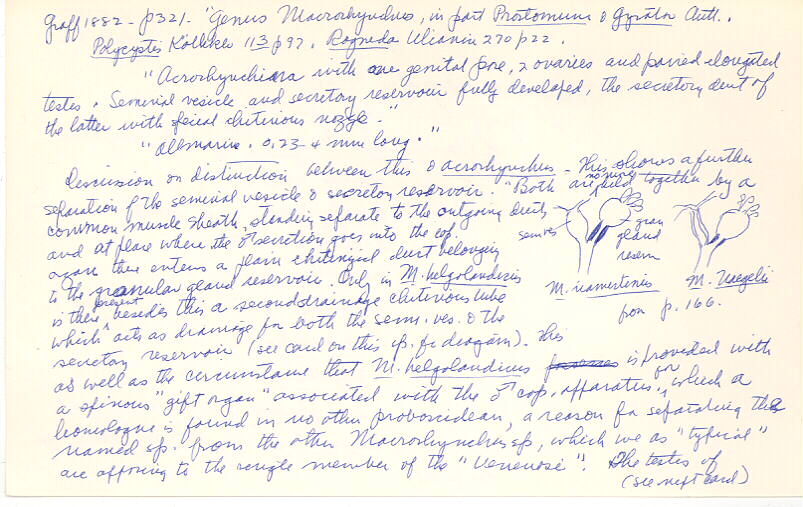 Graff 1882 - p321. "Genus Macrorhynchus, in part Prostomum & Gyrator Autt..
Polycystis Kölliker 113 p97. Rogneda Ulianin 270 p22.
"Acrorhynchiara with one genital pore, 2 ovaries and paired elongated
testes. Seminal vesicle and secretory reservoir fully developed, the secretory duct of
the latter with special chitinous nozzle."
"All marine. 0.23-4 mm long."
Discussion on distinction between this & acrorhynchus - This shows a further
separation of the seminal vesicle & secretory reservoir. "Both are no more held together by a
common muscle sheath, standing separate to the outgoing ducts
and at place where the ♂ secretion goes into the cop.
organ there enters a plain chitinized duct belonging
to the granular gland reservoir. Only in M. helgolandicus
is there present besides this a second drainage chitinous tube
which acts as drainage for both the semi. ves. & the
secretory reservoir (see card on this sp. for diagram). This
as well as the circumstance that M. helgolandicus is provided with
a spinous "gift organ" associated with the ♂ cop. apparatus, for which a
homologue is found in no other proboscidean, a reason for separating the
named sp. from the other Macrorhynchus sp, which we as "typical"
are opposing to the single member of the "Venenosi". The testes of
(see next card)
semi ves
gran
gland
reserv
M. mamertinus
M. Naegelii
from p. 166.